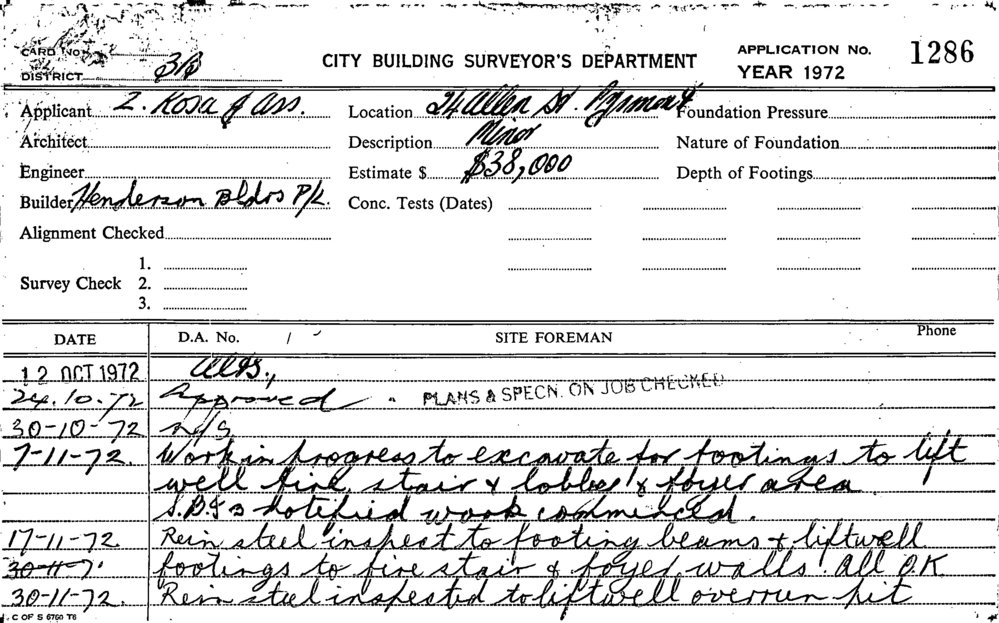 CARD No.
DISTRICT 3B
CITY BUILDING SURVEYOR'S DEPARTMENT
APPLICATION No.
YEAR 1972
1286
Applicant Z. Kosa & Ass.
Location 24 Allen St. Pyrmont
Foundation Pressure
Architect
Description Minor
Nature of Foundation
Engineer
Estimate $ $38,000
Depth of Footings
Builder Henderson Bldrs P/L.
Conc. Tests (Dates)
Alignment Checked
Survey Check
1.
2.
3.
DATE
D.A. No.
SITE FOREMAN
Phone
12 OCT 1972
24.10.72 Approved PLANS & SPECN. ON JOB CHECKED
30-10-72 n/s
7-11-72. Work in progress to excavate for footings to lift
well fire stair & lobby & foyer area
notified work commenced.
17-11-72 Rein steel inspect to footing beams & liftwell
30-11-7 footings to fire stair & foyer walls. All O.K.
30-11-72. Rein steel inspected to liftwell overrun pit
C OF S 6760 T6